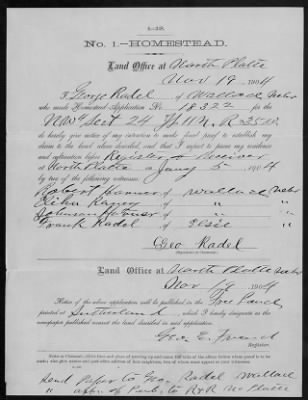 4-348.
No. 1.—HOMESTEAD.
Land Office at North Platte
Nov 19, 1904
I, George Radel, of Wallace, Nebr
who made Homestead Application No. 18322 for the
NW¼ Sect 24 Tp 11 N., R 35 W.
do hereby give notice of my intention to make final proof to establish my
claim to the land above described, and that I expect to prove my residence
and cultivation before Register & Receiver
at North Platte on Jany 5 1904
by two of the following witnesses:
Robert of Wallace, Nebr
of " "
Johnson of " "
Frank Radel of Elsie "
Geo Radel
Land Office at North Platte Nebr
Nov 19 1904
Notice of the above application will be published in the Free Lance
printed at Sutherland, which I hereby designate as the
newspaper published nearest the land described in said application.
Geo. E. French
Register.
Send paper to Geo Radel Wallace
" of Pub. to R&R No Platte